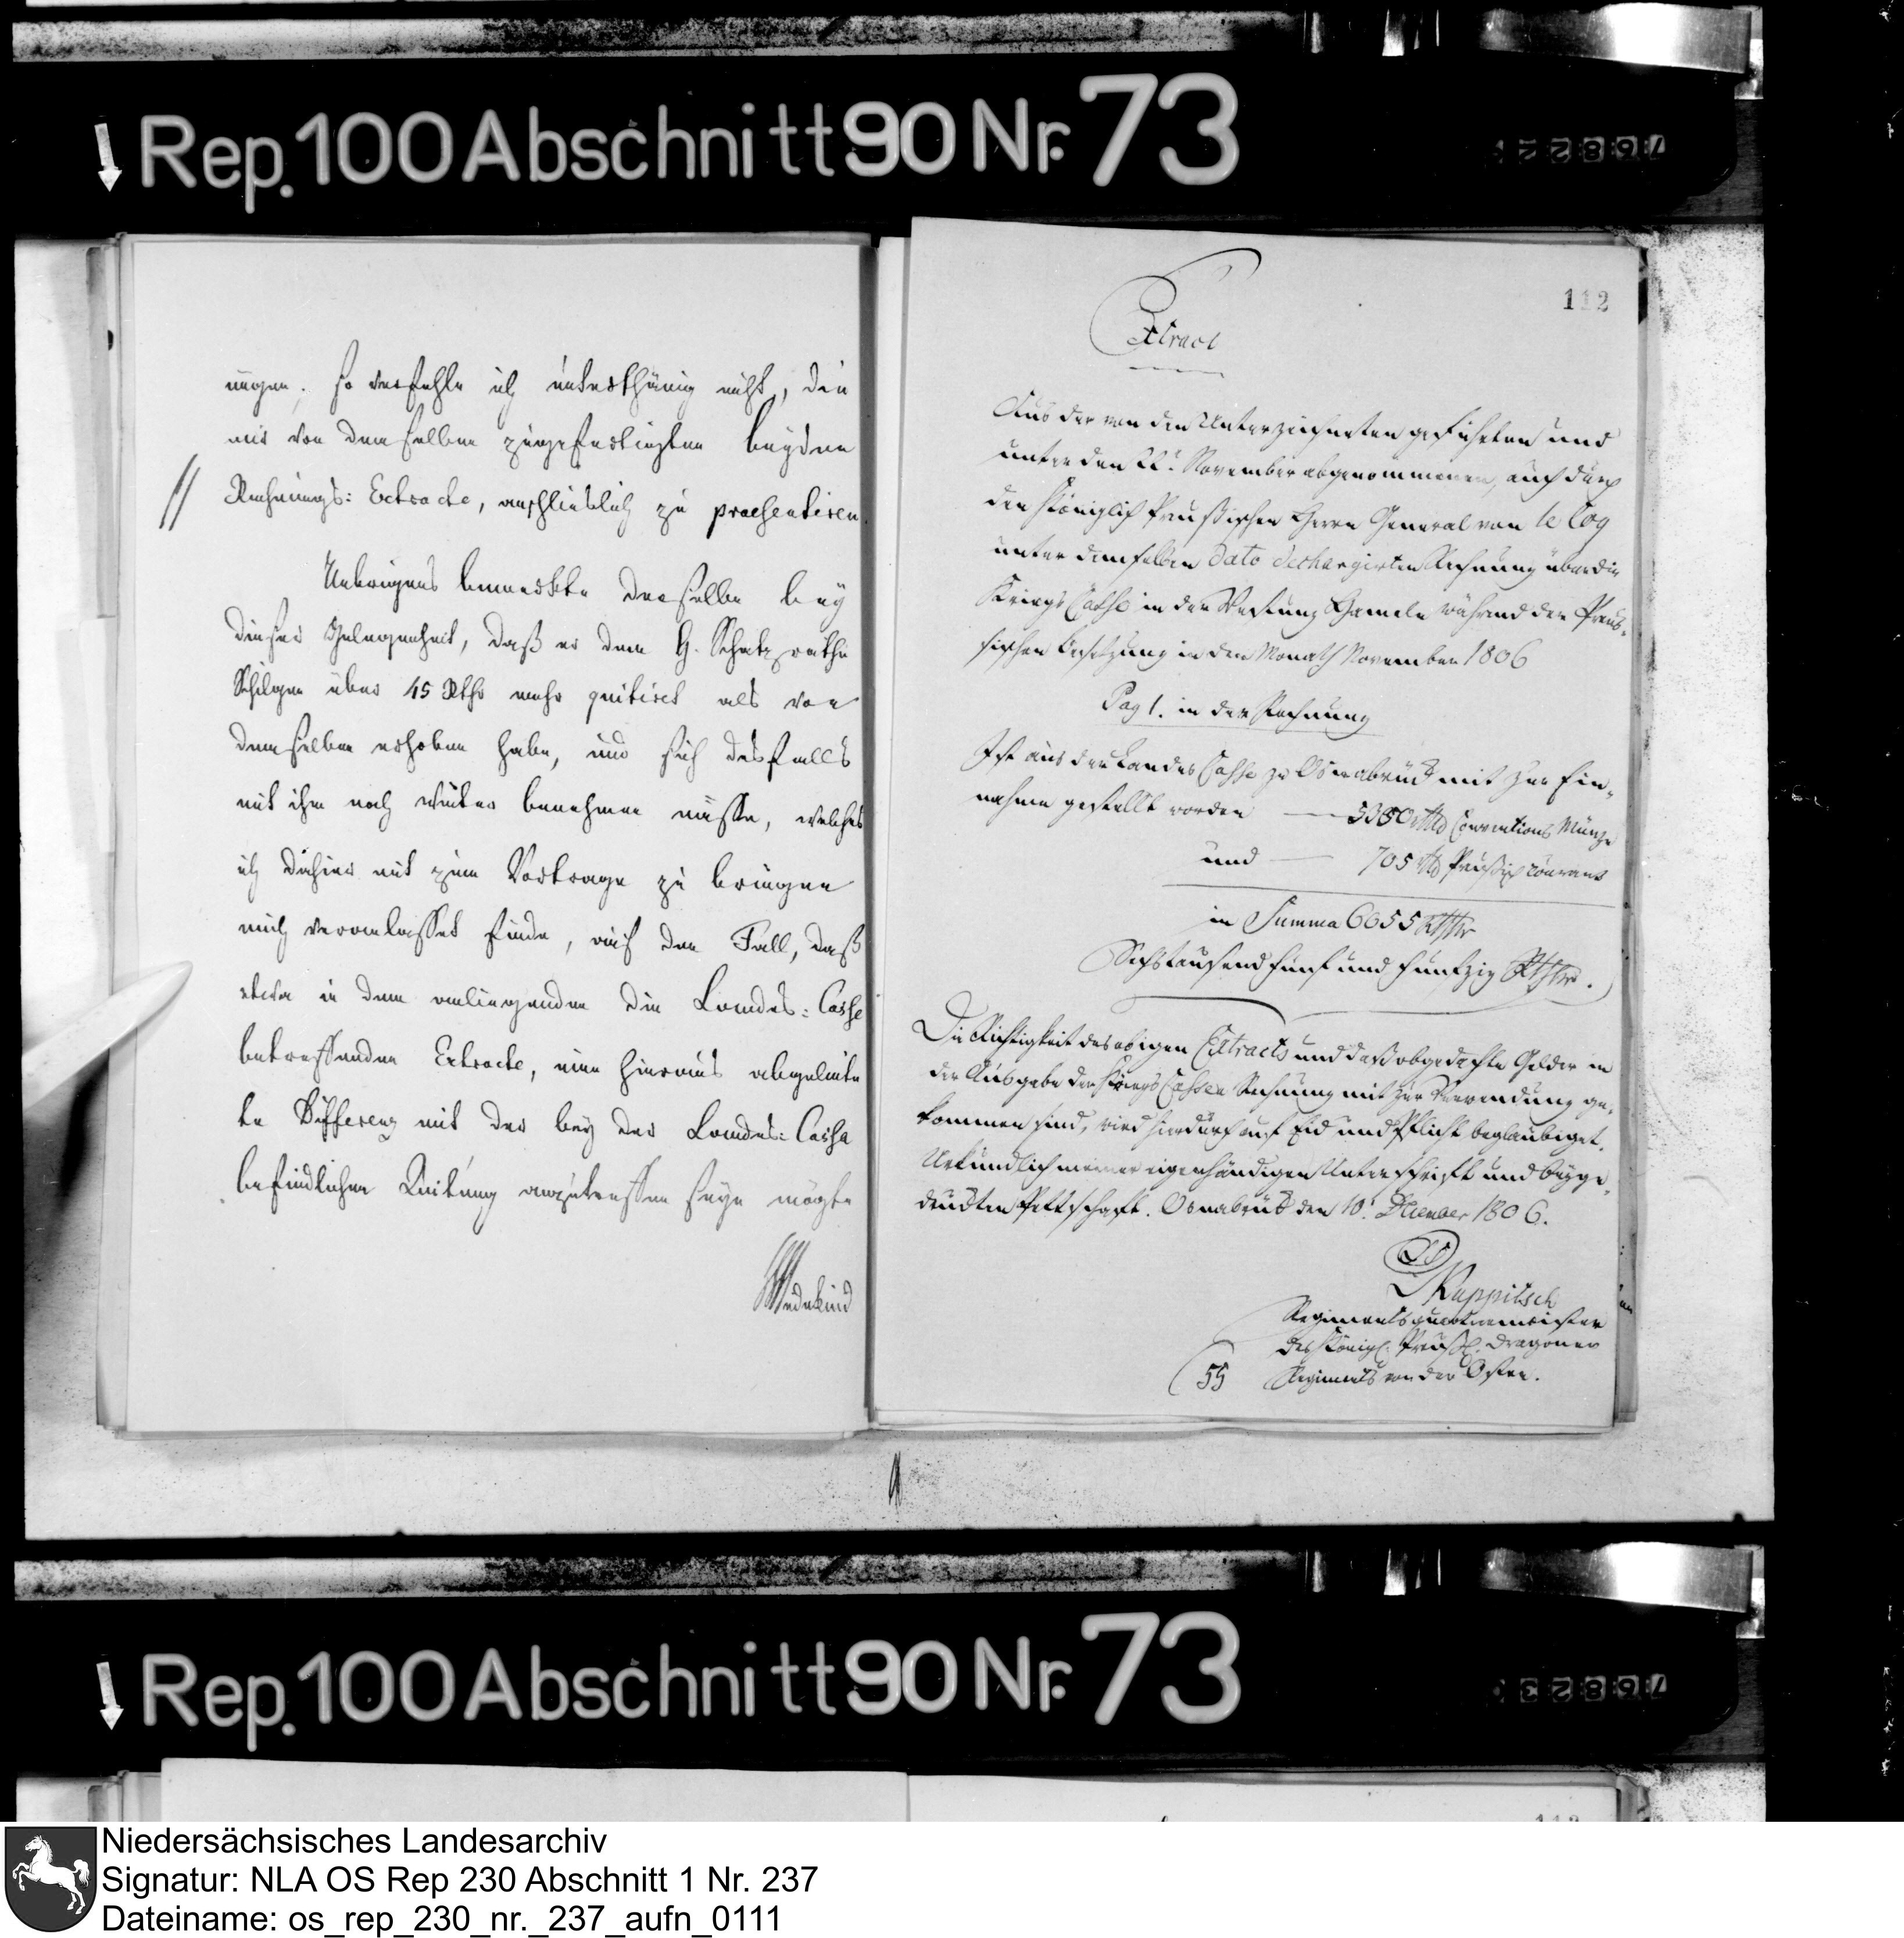 Rep. 100 Abschnitt 90 Nr. 73
ungen; so verfehle ich unterthänig nicht, die
mir von demselben zugefertigten beyden
// Rechnungs: Extracte, anschließlich zu praesentiren
Uebrigens bemerkte derselbe bey
dieser Gelegenheit, daß er dem H. Schatzrathe
Schilgen über 45 Rthr mehr quitirt als von
demselben erhoben habe, und sich desfalls
mit ihm noch weiter benehmen müsse, welches
ich dahier mit zum Vortrage zu bringen
mich veranlasset finde, auf den Fall, daß
etwa in dem anliegenden die Landes: Casse
betreffenden Extracte, eine hieraus abgeleite
te Differenz mit der bey der Landes: Cassa
befindlichen Quitung anzutreffen seyn mögte
Wedekind
112
Extract
Aus der von den Unterzeichneten geführten und
unter den 22t. November abgenommenen, auch durch
den Königlich Preußischen Herrn General von le Coq
unter demselben dato dechargirten Rechnung über die
Kriegs Casse in der Vestung Hameln während der Preus-
sischen Besetzung in den Monath November 1806
Pag 1. in der Rechnung
Ist aus der Landes Casse zu Osnabrück mit zur Ein-
nahme gestellt worden — 5350 rthl Conventions Münze
und — 705 rthl Preußisch Courant
in Summa 6055 Rthlr
Sechstausend fünf und funfzig Rthlr.
Die Richtigkeit des obigen Extracts und daß obgedachte Gelder in
der Ausgabe der Kriegs Cassen Rechnung mit zur Verwendung ge-
kommen sind, wird hierdurch auf Eid und Pflicht beglaubiget.
Urkundlich meiner eigenhändigen Unterschrift und beyge-
druckten Pettschaft. Osnabrück den 10t. December 1806.
LS
Ruppitsch
Regimentsquartiermeister
des Königl. Preuß. Dragoner
Regiments von der Osten.
55
Rep. 100 Abschnitt 90 Nr. 73
Niedersächsisches Landesarchiv
Signatur: NLA OS Rep 230 Abschnitt 1 Nr. 237
Dateiname: os_rep_230_nr._237_aufn_0111